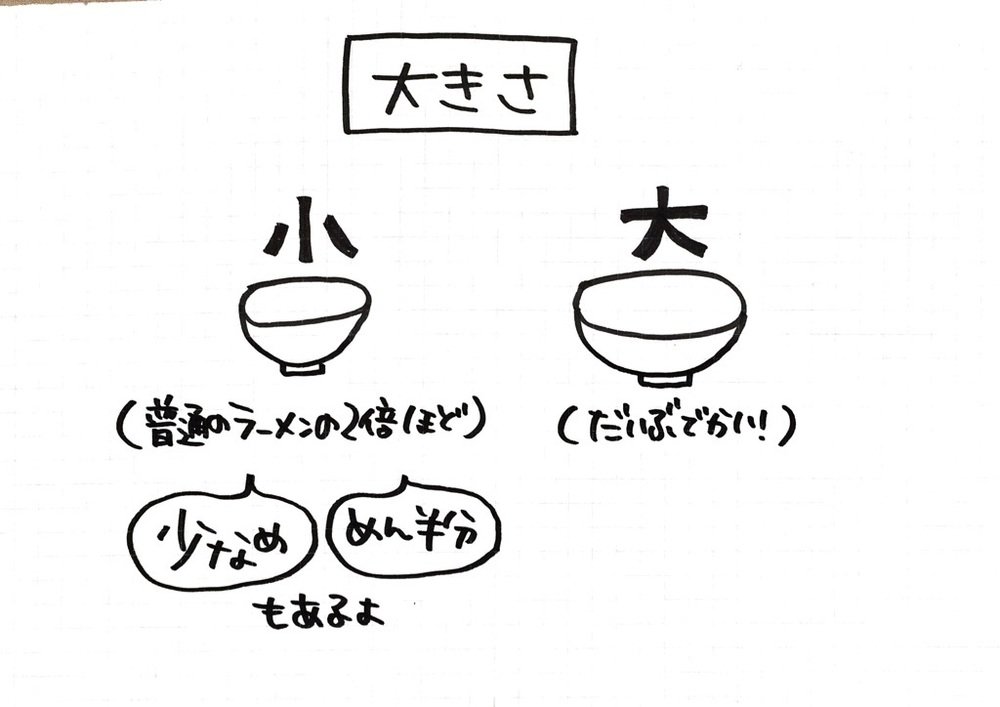 大きさ
小
大
(普通のラーメンの2倍ほど)
(だいぶでかい!)
少なめ
めん半分
もあるよ